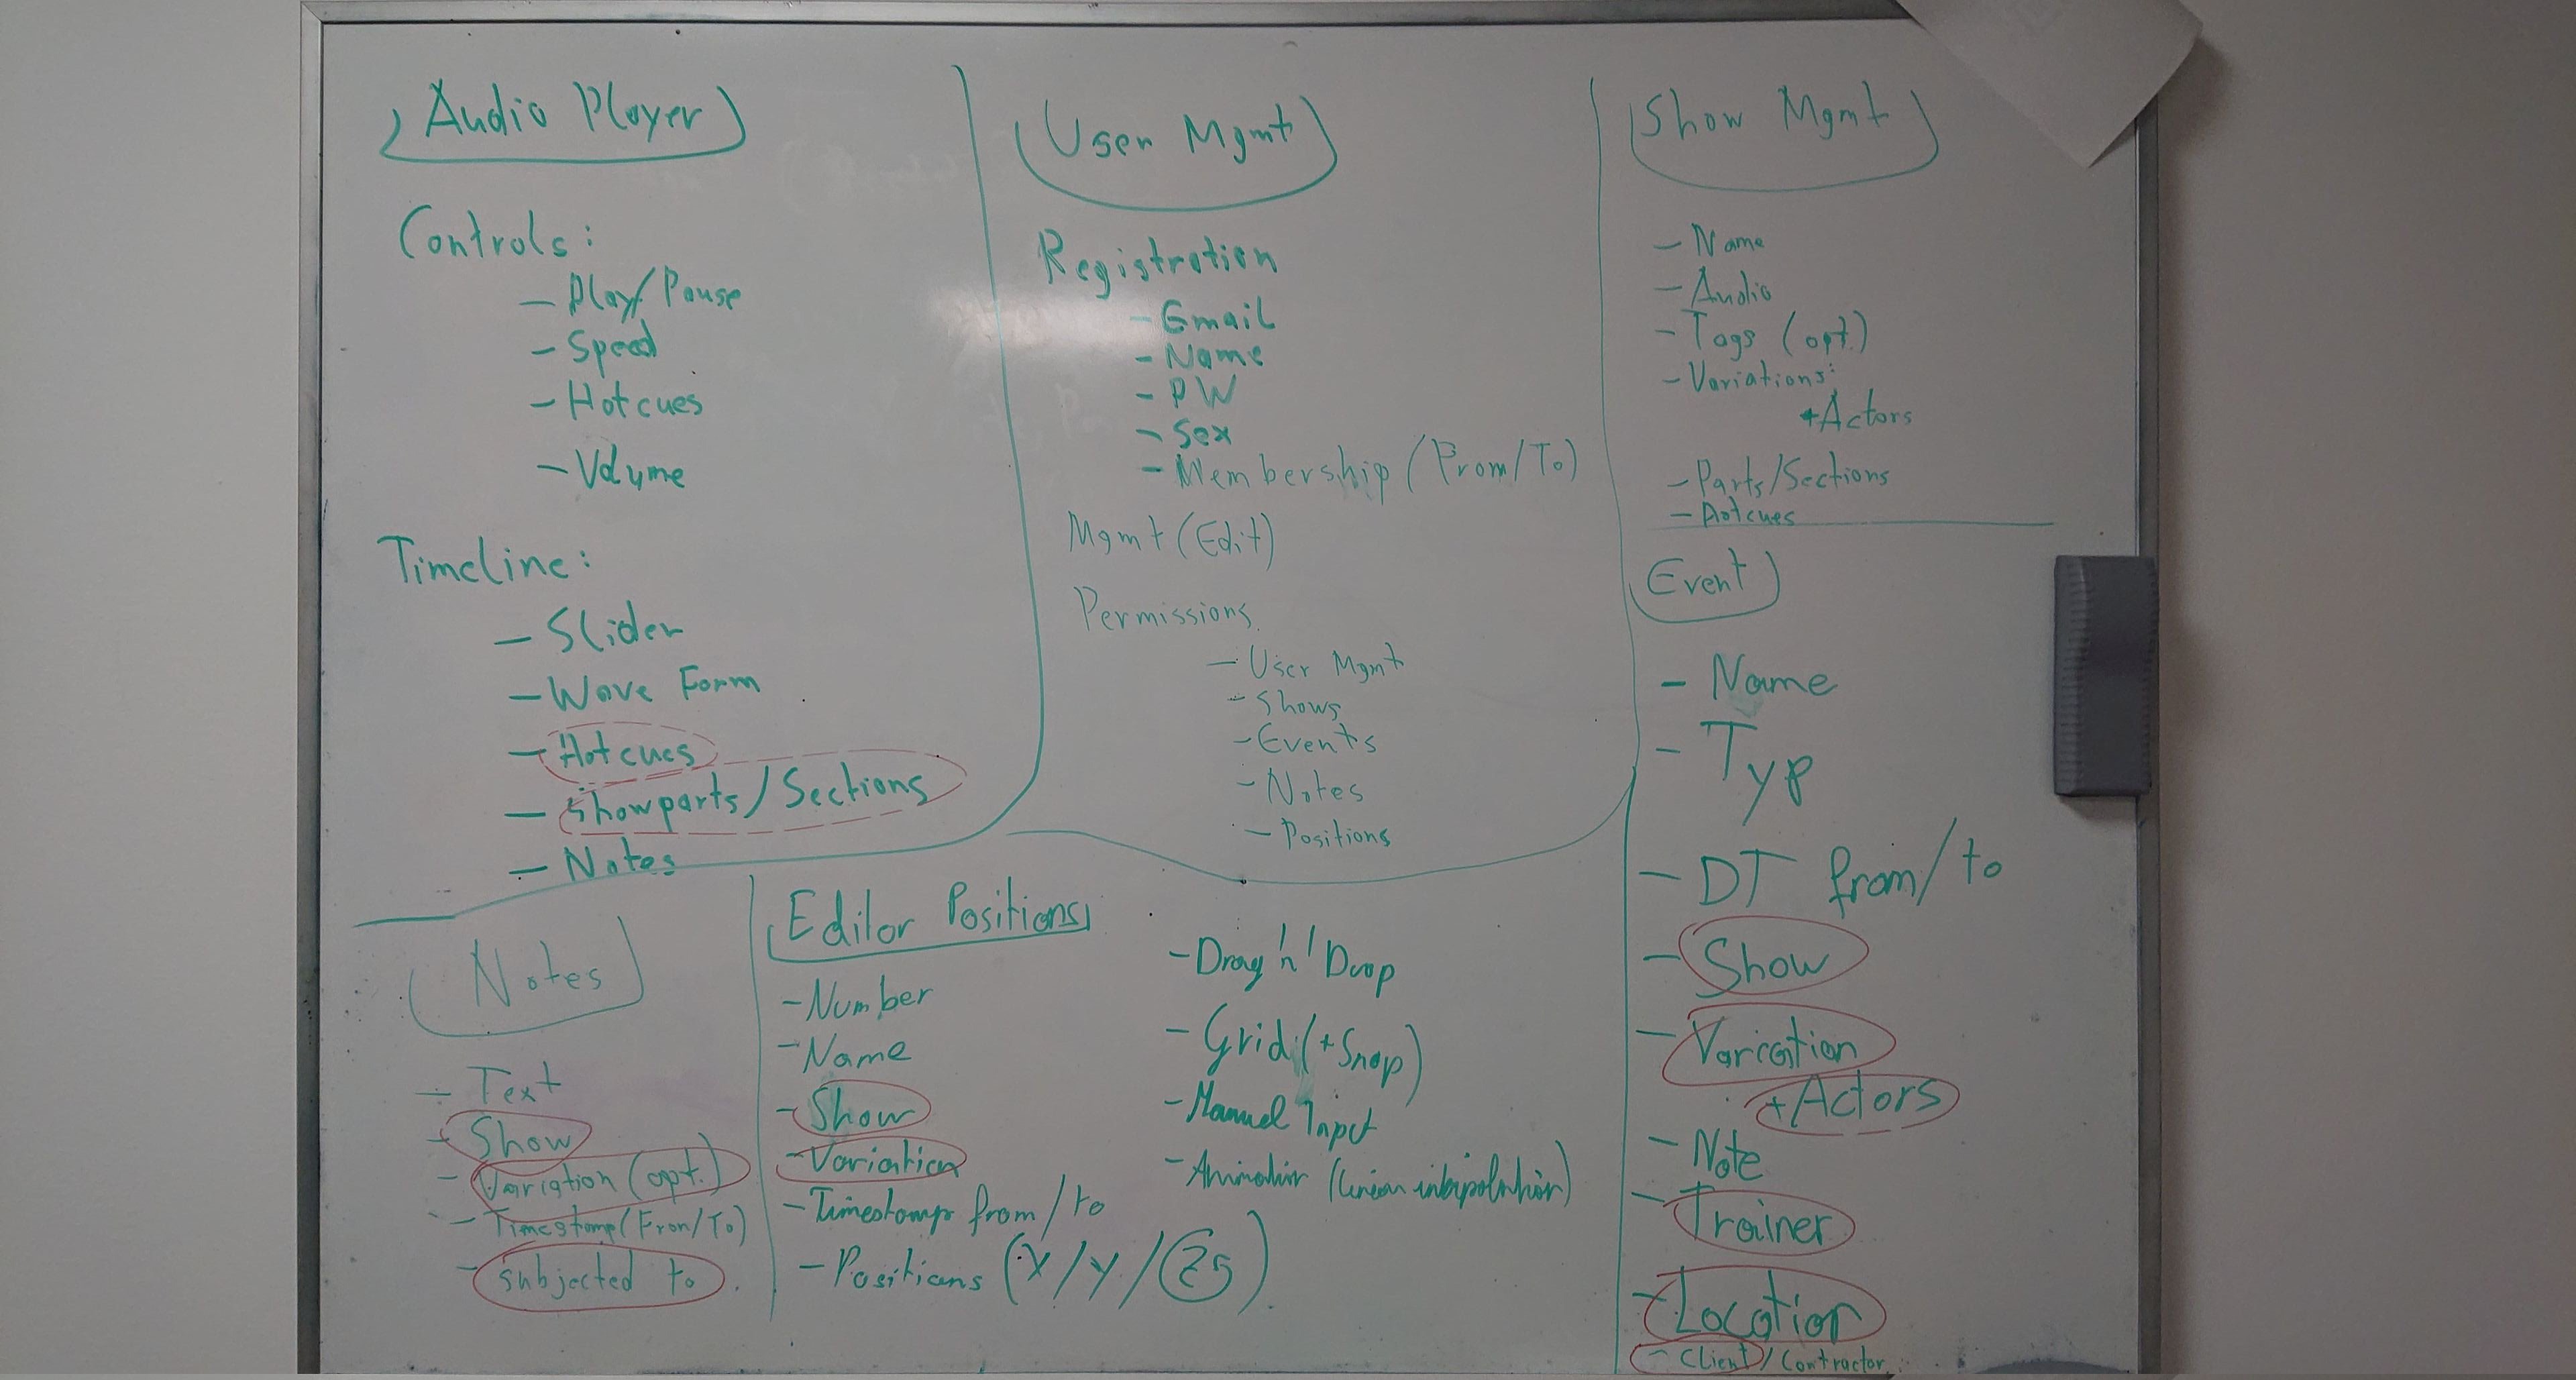 Audio Player
Controls:
- Play/Pause
- Speed
- Hotcues
- Volume
Timeline:
- Slider
- Wave Form
- Hotcues
- Showparts/Sections
- Notes
User Mgmt
Registration
- Email
- Name
- PW
- Sex
- Membership (From/To)
Mgmt (Edit)
Permissions
- User Mgmt
- Shows
- Events
- Notes
- Positions
Show Mgmt
- Name
- Audio
- Tags (opt.)
- Variations:
+Actors
- Parts/Sections
- Hotcues
Event
- Name
- Typ
- DT from/to
- Show
- Variation
+Actors
- Note
- Trainer
- Location
- Client/Contractor
Notes
- Text
- Show
- Variation (opt.)
- Timestamp (From/To)
- subjected to
Editor Positions
- Number
- Name
- Show
- Variation
- Timestamp from/to
- Positions (X/Y/
- Drag 'n' Drop
- Grid (+Snap)
- Manuel Input
- Animation (linear interpolation)